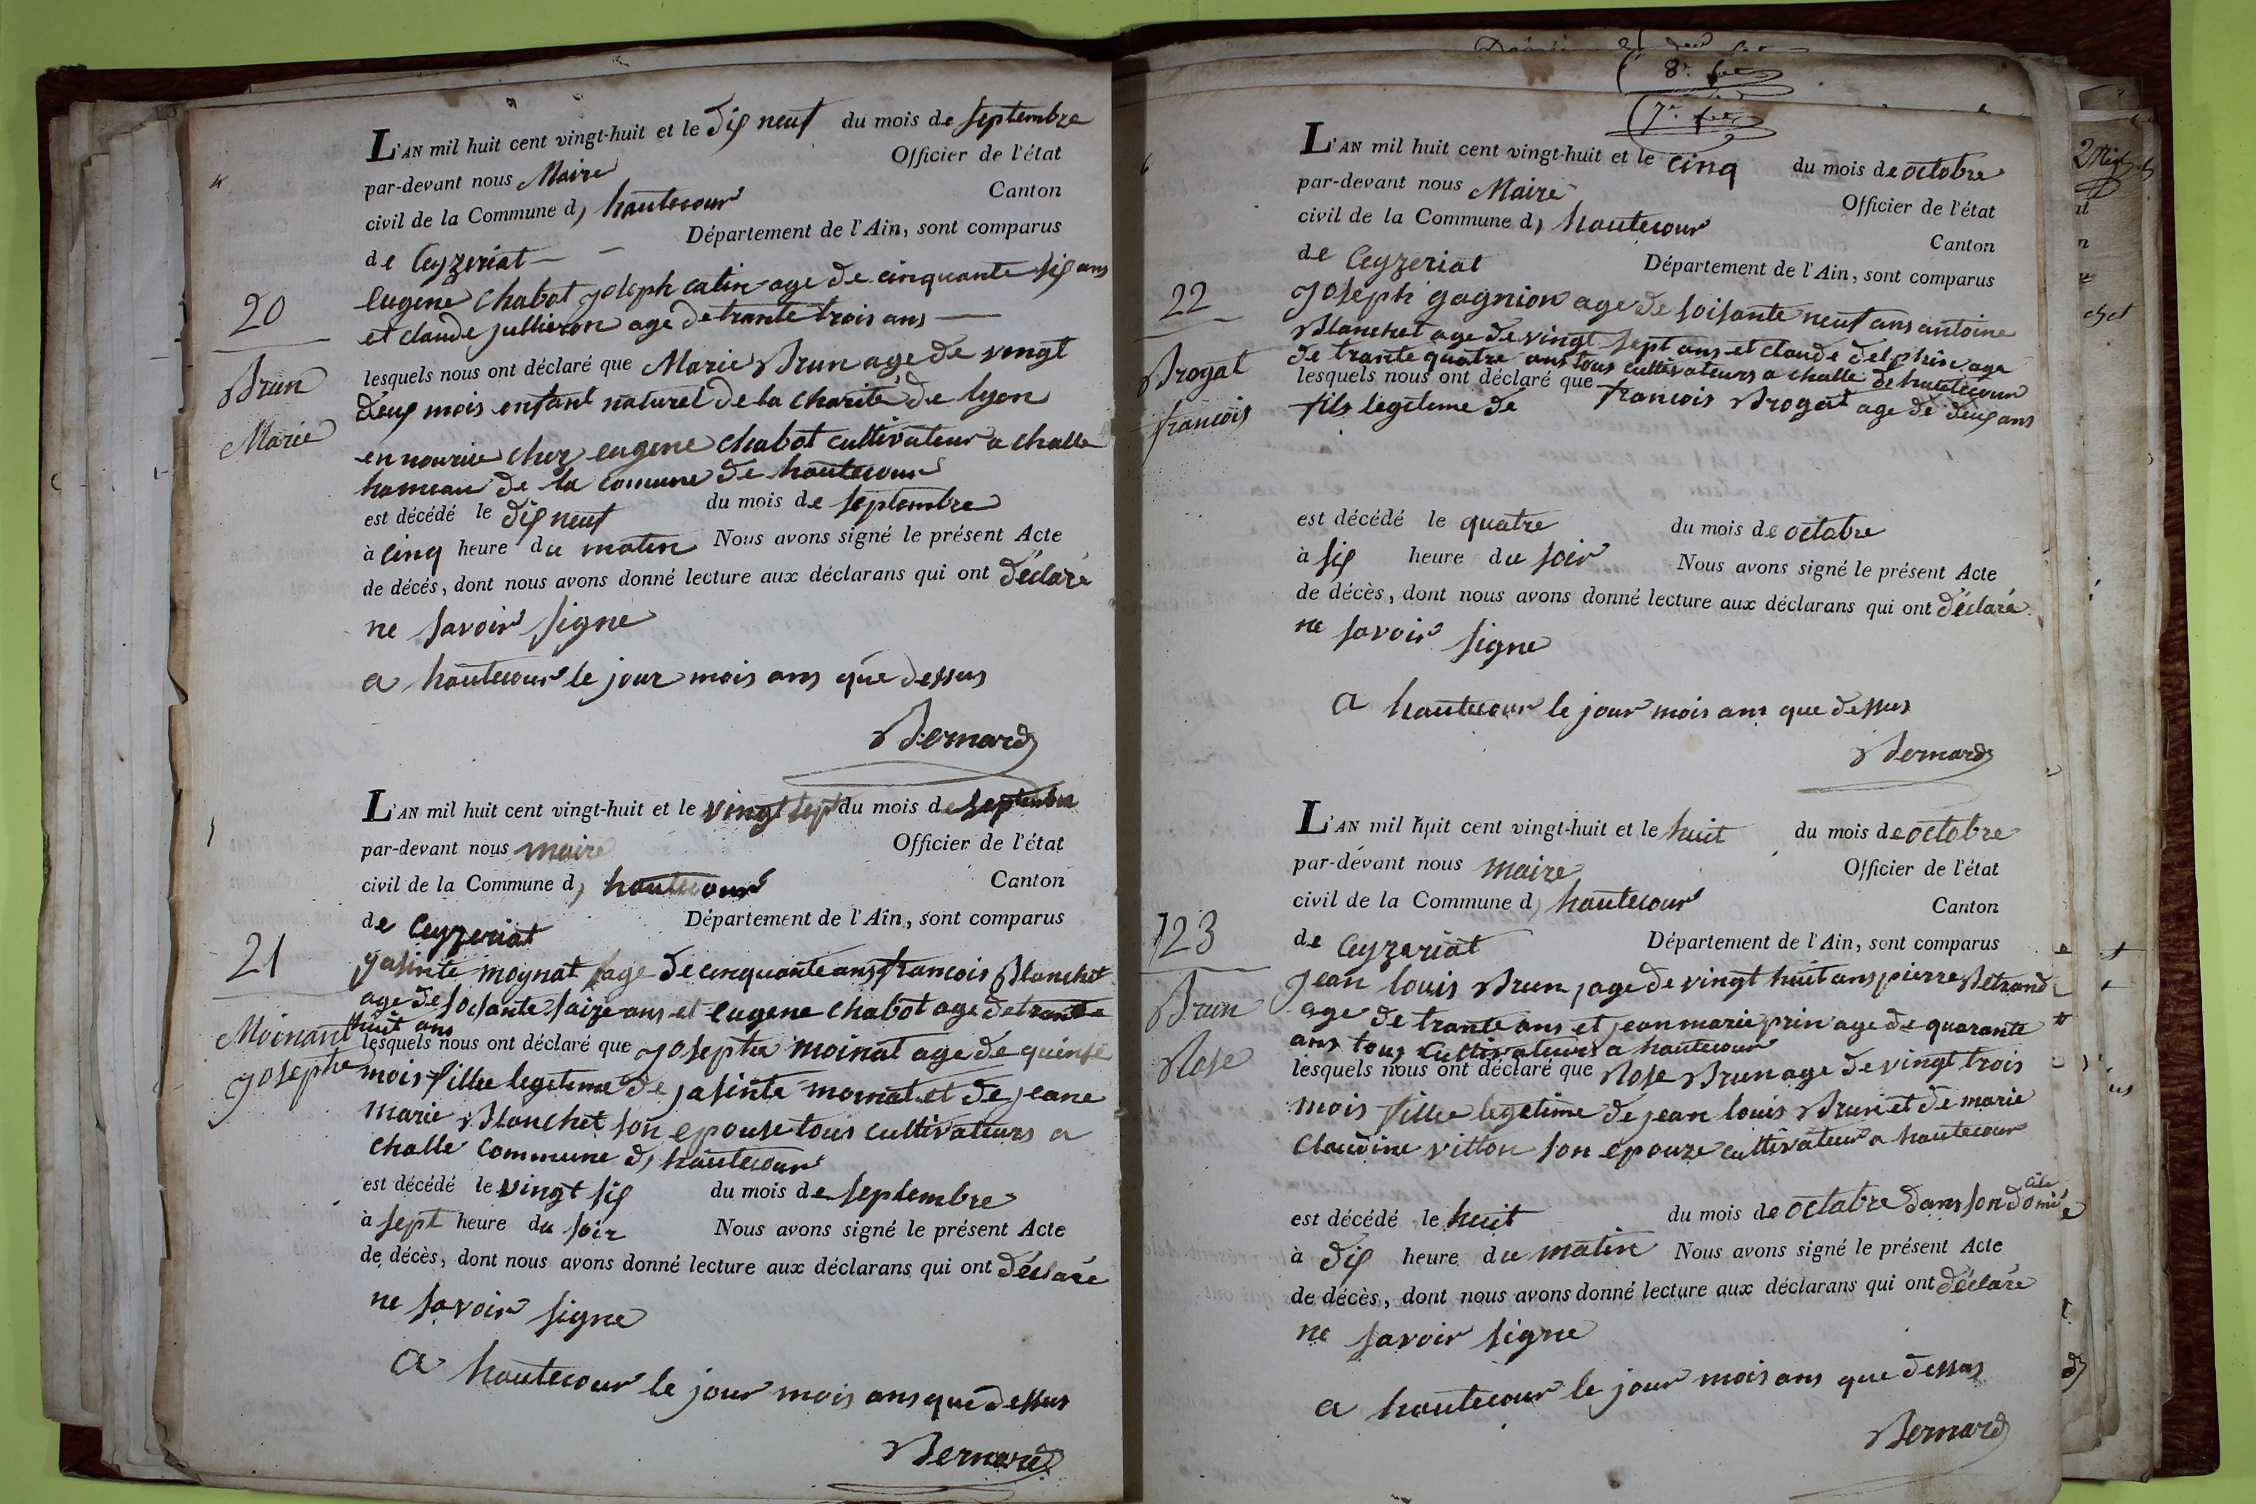 L'AN mil huit cent vingt-huit et le dix neuf du mois de septembre
par-devant nous Maire Officier de l'état
civil de la Commune d, hautecour Canton
de Ceyzeriat Département de l'Ain, sont comparus
Eugene Chabot joseph catin age de cinquante six ans
et claude jullieron age de trante trois ans
20
Brun
Marie
lesquels nous ont déclaré que Marie Brun age de vingt
deux mois enfant naturel de la charité de lyon
en nourice chez eugene chabot cultivateur a challe
hameau de la comune de hautecour
est décédé le dix neuf du mois de septembre
à cinq heure du matin Nous avons signé le présent Acte
de décés, dont nous avons donné lecture aux déclarans qui ont déclaré
ne savoir signe
a hautecour le jour mois ans que dessus
Bernard
L'AN mil huit cent vingt-huit et le vingt sept du mois de septembre
par-devant nous maire Officier de l'état
civil de la Commune d, hautecour Canton
de Ceyzeriat Département de l'Ain, sont comparus
21
Moinant
josephe
jasinte moynat age de cinquante ans francois Blanchet
age de soisante saize ans et eugene chabot age de trante
huit ans
lesquels nous ont déclaré que josephe moinat age de quinse
mois fillie legitime de jasinte moinat et de jeane
marie Blanchet son epouse tous cultivateurs a
challe commune d, hautecour
est décédé le vingt six du mois de septembre
à sept heure du soir Nous avons signé le présent Acte
de décès, dont nous avons donné lecture aux déclarans qui ont déclaré
ne savoir signe
a hautecour le jour mois ans que dessus
Bernard
8.e
7.e
L'AN mil huit cent vingt-huit et le cinq du mois de octobre
par-devant nous Maire Officier de l'état
civil de la Commune d, hautecour Canton
de Ceyzeriat Département de l'Ain, sont comparus
22
Brogat
francois
joseph gagnion age de soisante neuf ans antoine
Blanchet age de vingt sept ans et claude delphin age
de trante quatre ans tous cultivateurs a challe de hautecour
lesquels nous ont déclaré que francois Brogat age de deux ans
fils legitime de
est décédé le quatre du mois de octobre
à six heure du soir Nous avons signé le présent Acte
de décès, dont nous avons donné lecture aux déclarans qui ont déclaré
ne savoir signe
a hautecour le jour mois ans que dessus
Bernard
L'AN mil huit cent vingt-huit et le huit du mois de octobre
par-devant nous maire Officier de l'état
civil de la Commune d, hautecour Canton
de Ceyzeriat Département de l'Ain, sont comparus
23
Brun
Rose
jean louis Brun, age de vingt huit ans pierre Betrand
age de trante ans et jean marie prin age de quarante
ans tous cultivateurs a hautecour
lesquels nous ont déclaré que Rose Brun age de vingt trois
mois fillie legetime de jean louis Brun et de marie
Claudine vitton son epouze cultivateur a hautecour
est décédé le huit du mois de octobre dans son domicile
à dix heure du matin Nous avons signé le présent Acte
de décès, dont nous avons donné lecture aux déclarans qui ont déclaré
ne savoir signe
a hautecour le jour mois ans que dessus
Bernard